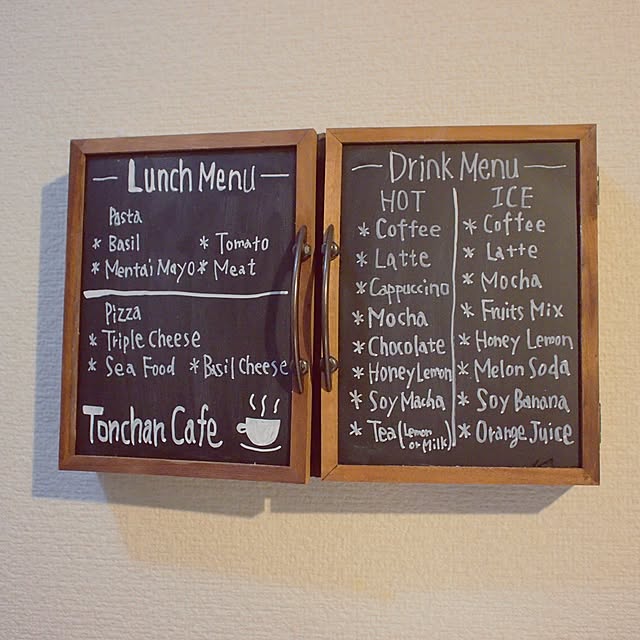 Lunch Menu
Pasta
* Basil * Tomato
* Mentai Mayo * Meat
Pizza
* Triple Cheese
* Sea Food * Basil Cheese
Tonchan Cafe
Drink Menu
HOT
* Coffee
* Latte
* Cappuccino
* Mocha
* Chocolate
* Honey Lemon
* Soy Macha
* Tea (Lemon or Milk)
ICE
* Coffee
* Latte
* Mocha
* Fruits Mix
* Honey Lemon
* Melon Soda
* Soy Banana
* Orange Juice